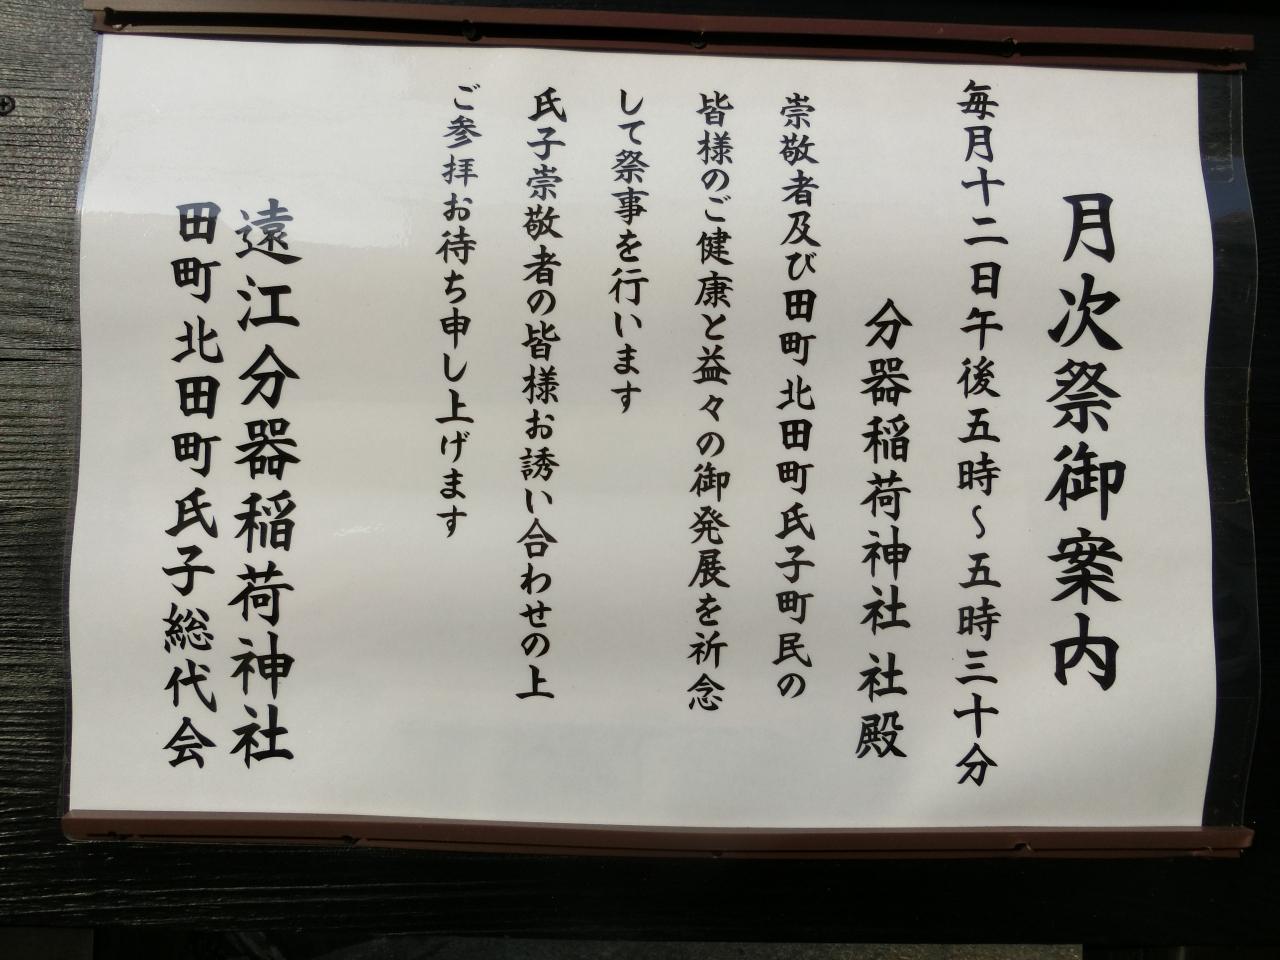 月次祭御案内
毎月十二日午後五時～五時三十分
分器稲荷神社 社殿
崇敬者及び田町北田町氏子町民の
皆様のご健康と益々の御発展を祈念
して祭事を行います
氏子崇敬者の皆様お誘い合わせの上
ご参拝お待ち申し上げます
遠江分器稲荷神社
田町北田町氏子総代会